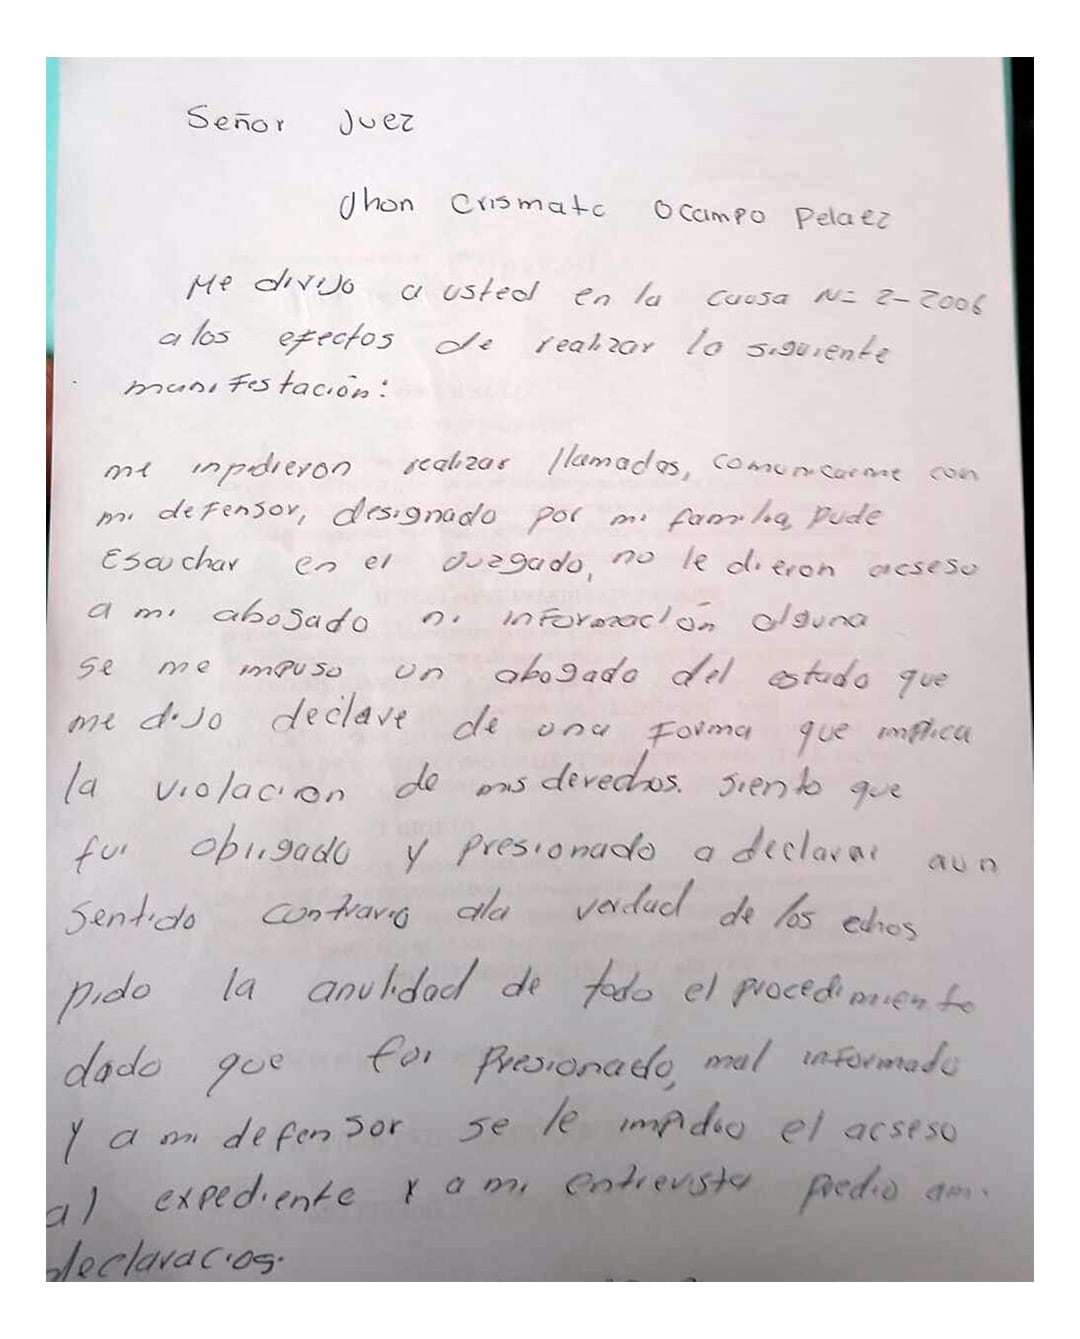 Señor Juez
Jhon Crismatc Ocampo Pelaez
Me dirijo a usted en la causa N= 2-2006
a los efectos de realizar lo siguiente
manifestación:
me inpidieron realizar llamadas, comunicarme con
mi defensor, designado por mi familia, pude
Escuchar en el Juzgado, no le dieron acseso
a mi abogado ni información alguna
se me impuso un abogado del estado que
me dijo declare de una forma que implica
la violacion de mis derechos. siento que
fui obligado y presionado a declarar aun
sentido contrario ala verdad de los echos
pido la anulidad de todo el procedimiento
dado que fui presionado, mal informado
y a mi defensor se le impidio el acseso
al expediente y a mi entrevista predio ami
declaracion.